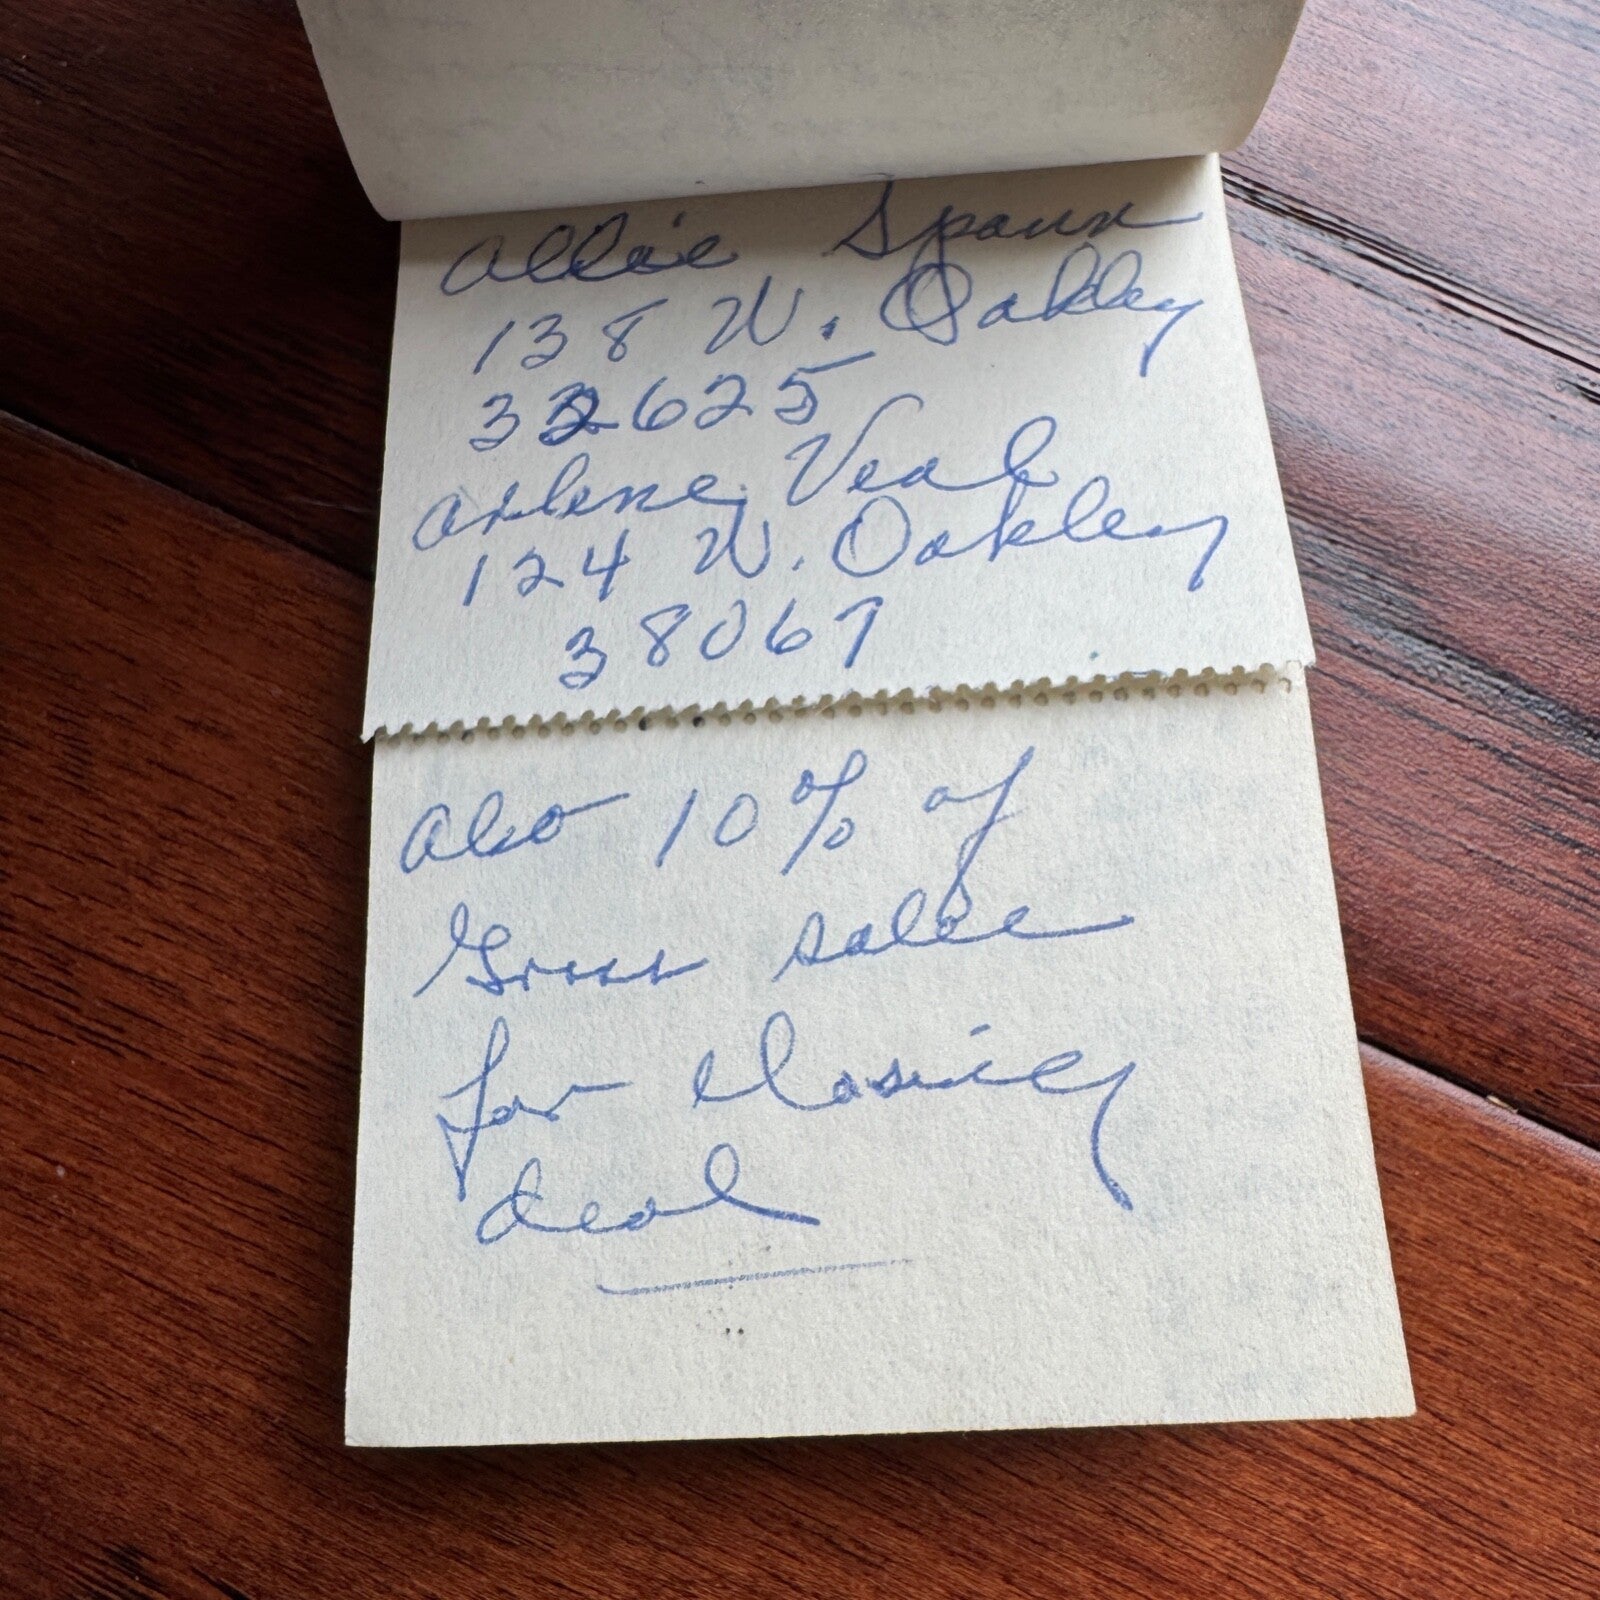 Allie Spann
138 W. Oakley
32625
Arlene Veal
124 W. Oakley
38067
Also 10% of
Gross sales
for closing
deal